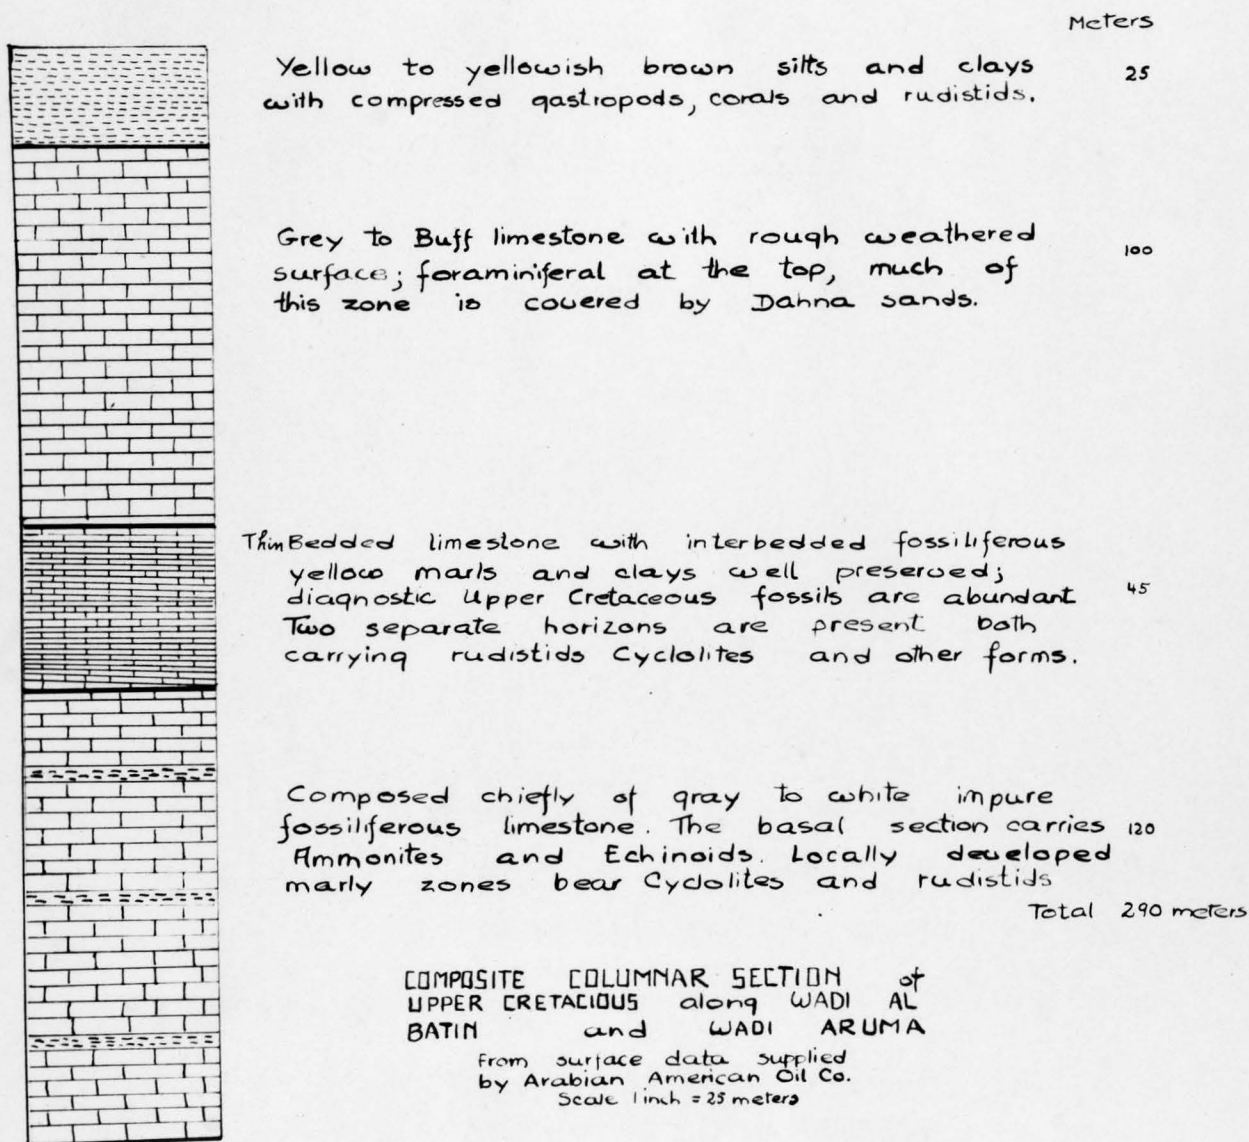 Meters
Yellow to yellowish brown silts and clays 25
with compressed gastropods, corals and rudistids.
Grey to Buff limestone with rough weathered
surface; foraminiferal at the top, much of 100
this zone is covered by Dahna sands.
Thin Bedded limestone with interbedded fossiliferous
yellow marls and clays well preserved;
diagnostic Upper Cretaceous fossils are abundant 45
Two separate horizons are present both
carrying rudistids Cyclolites and other forms.
Composed chiefly of gray to white impure
fossiliferous limestone. The basal section carries 120
Ammonites and Echinoids. Locally developed
marly zones bear Cyclolites and rudistids
Total 290 meters
COMPOSITE COLUMNAR SECTION of
UPPER CRETACIOUS along WADI AL
BATIN and WADI ARUMA
From surface data supplied
by Arabian American Oil Co.
Scale 1 inch = 25 meters